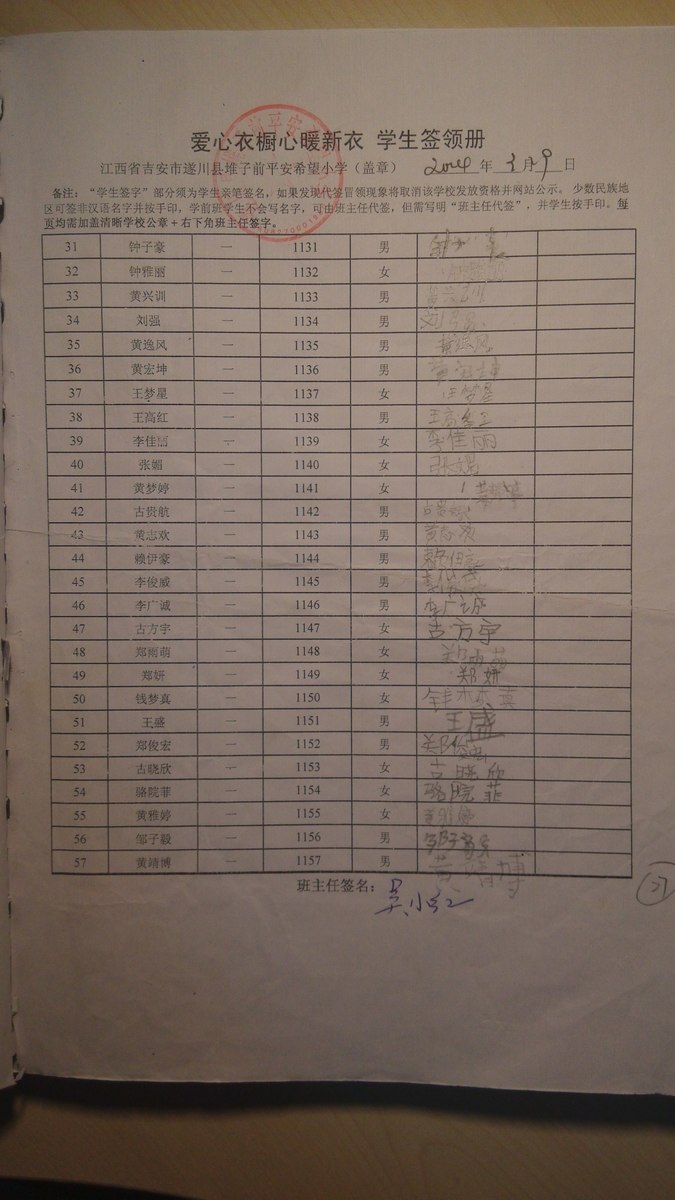 爱心衣橱心暖新衣 学生签领册
江西省吉安市遂川县堆子前平安希望小学（盖章） 2014 年 3 月 9 日
备注：“学生签字”部分须为学生亲笔签名，如果发现代签冒领现象将取消该学校发放资格并网站公示。 少数民族地
区可签非汉语名字并按手印，学前班学生不会写名字，可由班主任代签，但需写明“班主任代签”，并学生按手印。每
页均需加盖清晰学校公章+右下角班主任签字。
31 钟子豪 一 1131 男
32 钟雅丽 一 1132 女
33 黄兴训 一 1133 男 黄兴训
34 刘强 一 1134 男 刘强
35 黄逸风 一 1135 男 黄逸风
36 黄宏坤 一 1136 男 黄宏坤
37 王梦星 一 1137 女 王梦星
38 王高红 一 1138 男 王高红
39 李佳丽 一 1139 女 李佳丽
40 张媚 一 1140 女 张媚
41 黄梦婷 一 1141 女 黄梦婷
42 古贵航 一 1142 男 古贵航
43 黄志欢 一 1143 男 黄志欢
44 赖伊豪 一 1144 男
45 李俊威 一 1145 男
46 李广诚 一 1146 男 李广诚
47 古方宇 一 1147 女 古方宇
48 郑雨萌 一 1148 女 郑雨萌
49 郑妍 一 1149 女 郑妍
50 钱梦真 一 1150 女 钱梦真
51 王盛 一 1151 男 王盛
52 郑俊宏 一 1152 男 郑俊宏
53 古晓欣 一 1153 女 古晓欣
54 骆院菲 一 1154 女 骆院菲
55 黄雅婷 一 1155 女 黄雅婷
56 邹子毅 一 1156 男 邹子毅
57 黄靖博 一 1157 男 黄靖博
班主任签名： 吴小红
27